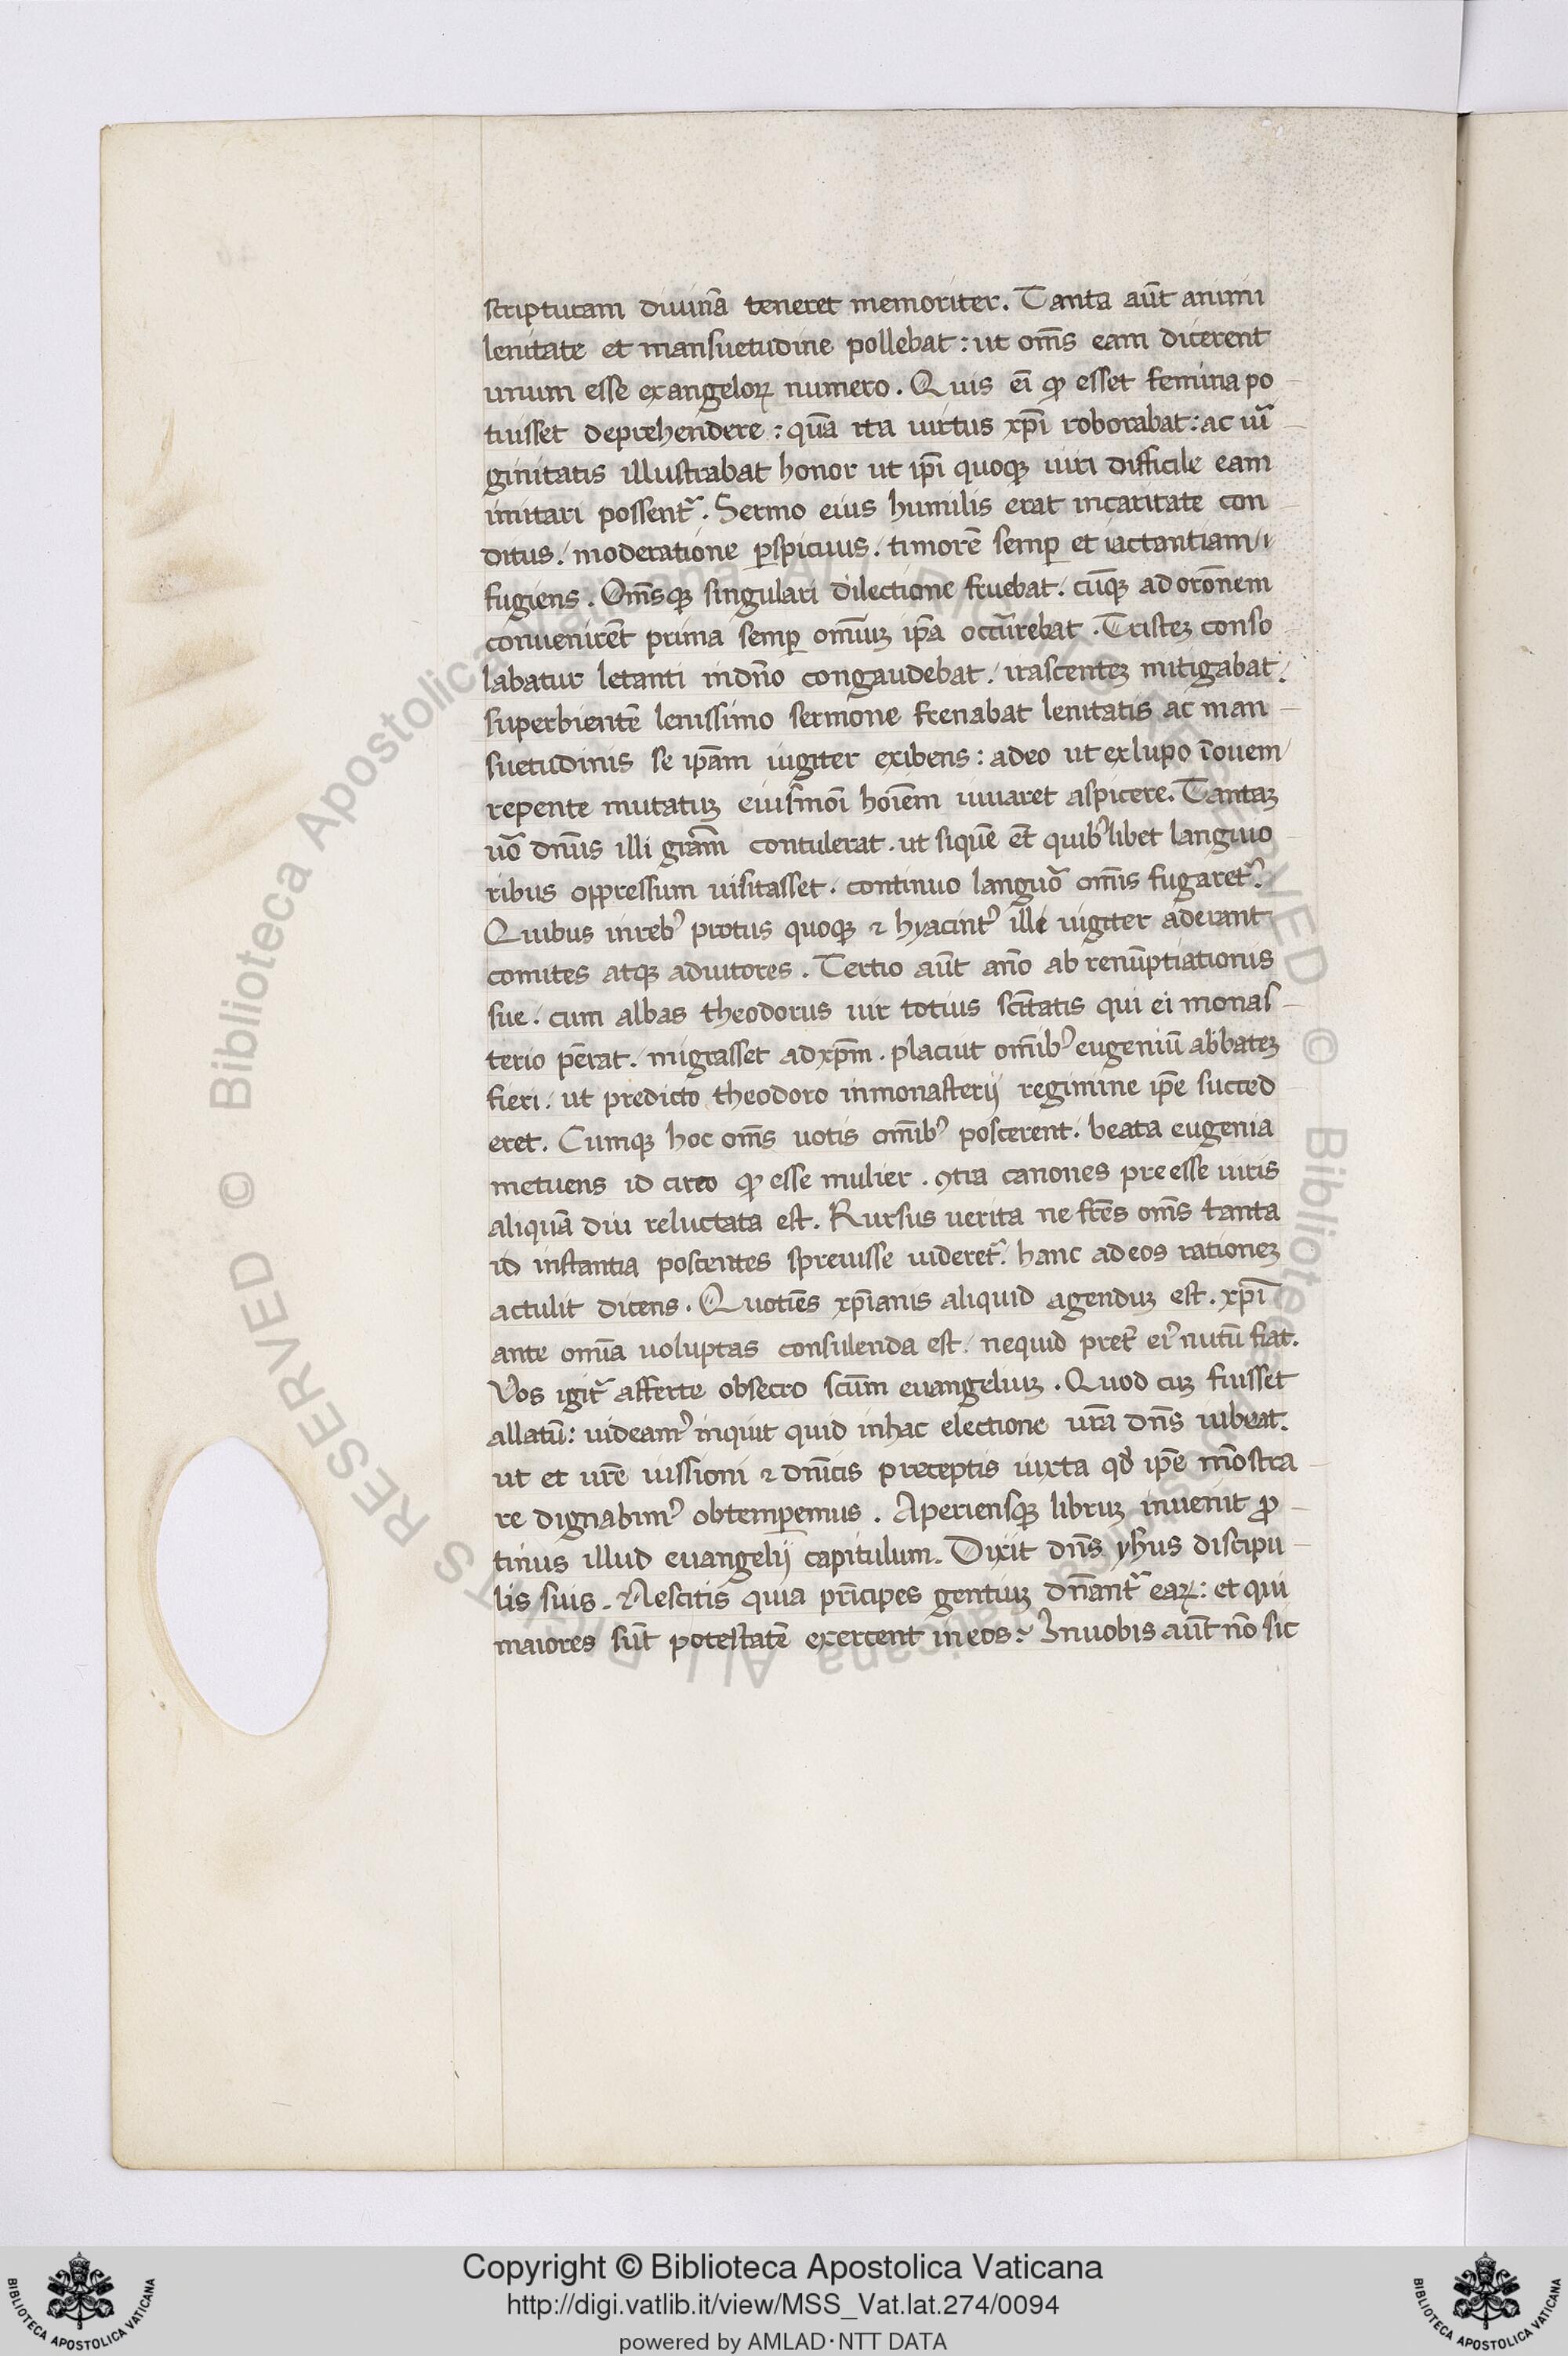 scripturam diuinā teneret memoriter. Tanta aūt animi
lenitate et mansuetudine pollebat: ut om̄s eam dicerent
unum esse exangeloꝝ numero. Quis eī ꝙ esset femina po
tuisset deprehendere: quā ita uirtus xp̄i roborabat: ac uir̄
ginitatis illustrabat honor ut ip̄i quoqꝫ uiri difficile eam
imitari possent᷑. Sermo eius humilis erat incaritate con
ditus. moderatione ꝑspicuus. timorē semꝑ et iactantiam
fugiens. Om̄sqꝫ singulari dilectione fruebat. cūqꝫ ad orōnem
conuenirēt prima semꝑ omīuꝫ ip̄a occurrebat. Tristeꝫ conso
labatur letanti indn̄o congaudebat. irascenteꝫ mitigabat.
superbientē lenissimo sermone frenabat lenitatis ac man
suetudinis se ip̄am iugiter exibens: adeo ut exlupo ī ouem
repente mutatuꝫ eiusmōi hoīem iuuaret aspicere. Tantaꝫ
uō dn̄us illi gratīam contulerat. ut siquē et̄ quibꝰlibet languo
ribus oppressum uisitasset. continuo languor̄ om̄is fugaret᷑.
Quibus inrebꝰ protus quoqꝫ ⁊ hyacintꝰ ille iugiter aderant
comites atqꝫ adiutores. Tertio aūt anō ab renūptiationis
sue. cum abbas theodorus uir totius scītatis qui ei monas
terio p̄erat. migrasset adxp̄m. placuit omībꝰ eugeniū abbateꝫ
fieri. ut predicto theodoro inmonasterij regimine ip̄e succed
eret. Cumqꝫ hoc om̄s uotis om̄ibꝰ poscerent. beata eugenia
metuens id circo ꝙ esse mulier. ꝯtra canones preesse uiris
aliquā diu reluctata est. Rursus uerita ne fr̄es om̄s tanta
id instantia poscentes spreuisse uideret᷑. hanc adeos rationeꝫ
actulit dicens. Quotiēs xp̄ianis aliquid agenduꝫ est. xp̄i
ante omīa uoluptas consulenda est. nequid pretꝰ eiꝰ nutū fiat.
Vos igit᷑ afferte obsecro scūm euangeliuꝫ. Quod cuꝫ fuisset
allatū: uideamꝰ inquit quid inhac electione ur̄a dn̄s iubeat.
ut et ur̄e iussioni ⁊ dn̄icis preceptis iuxta qd̄ ip̄e mōstra
re dignabimꝰ obtemperemus. Aperiensqꝫ libruꝫ inuenit ꝓ
tinus illud euangelij capitulum. Dixit dn̄s yhus discipu
lis suis. Nescitis quia prīcipes gentiuꝫ dn̄ant᷑ eaꝝ: et qui
maiores sūt potestatē exercent in eos? Inuobis aūt nō sic
Copyright © Biblioteca Apostolica Vaticana
http://digi.vatlib.it/view/MSS_Vat.lat.274/0094
powered by AMLAD·NTT DATA